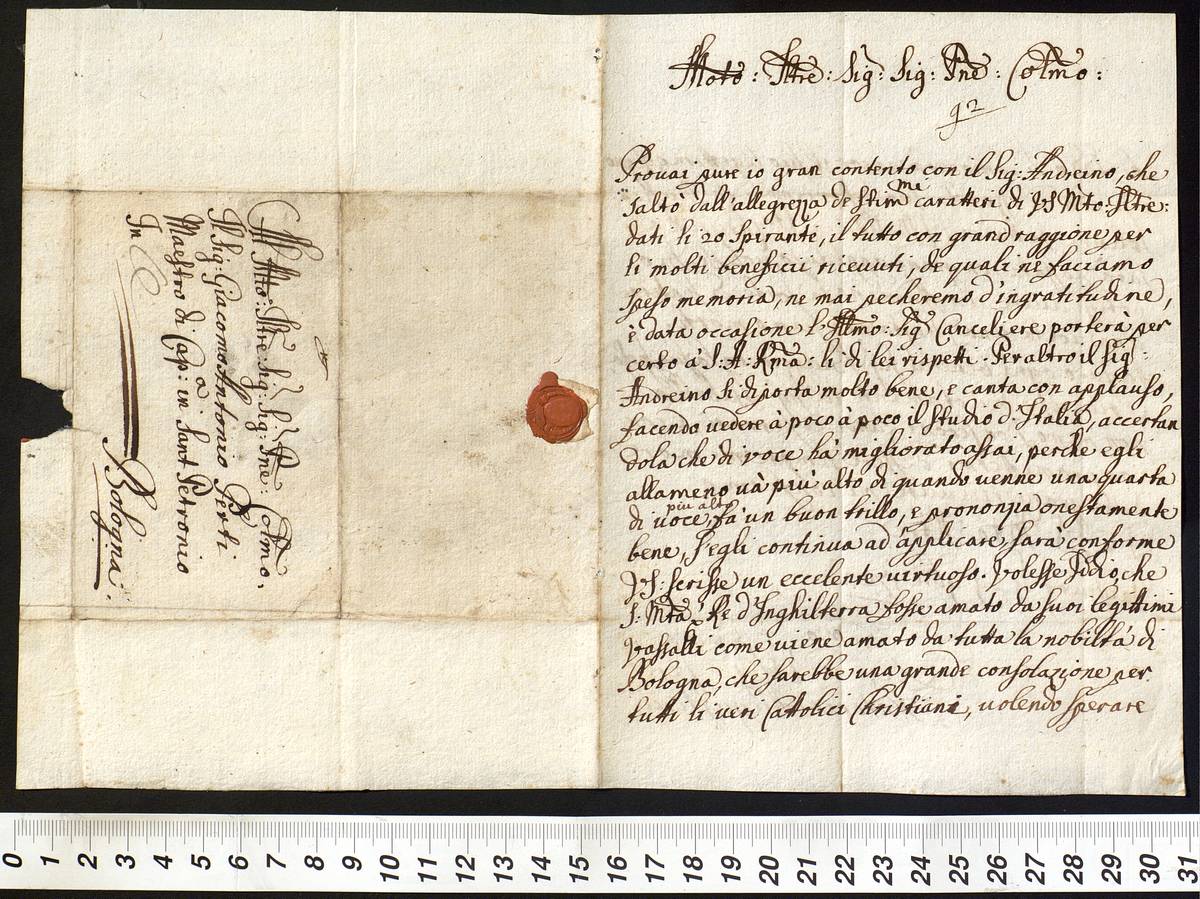 Molto: Illre: Sig: Sig: Pne: Colmo:
92
Provai pure io gran contento con il Sig: Andreino, che
saltò dall'allegrezza de stimmi caratteri di VS Mto: Illre:
dati li 20 spirante, il tutto con grand raggione per
li molti beneficii ricevuti, de quali ne facciamo
speso memoria, ne mai pecheremo d'ingratitudine,
è data occasione l'Illmo: Sig Canceliere porterà per
certo à S: A: Rma: li di lei rispetti. Per altro il Sig:
Andreino si diporta molto bene, e canta con applauso,
facendo vedere à poco à poco il studio d'Italia, accertan
dola che di voce hà migliorato assai, perche egli
allameno và più alto di quando venne una quarta
di voce più alto, fà un buon trillo, e prononzia onestamente
bene, s'egli continua ad applicare sarà conforme
VS: scrisse un eccelente virtuoso. Volesse Iddio, che
S: Mtà Rè d'Inghilterra fosse amato da suoi legittimi
vassalli come viene amato da tutta la nobiltà di
Bologna, che sarebbe una grande consolazione per
tutti li veri Cattolici Christiani, volendo sperare
Al Mto: Illre: Sig: Sig: Pne: Colmo.
Il Sig: Giacomo Antonio Perti
Maestro di Capa: in Sant Petronio
In
Bologna.
0 1 2 3 4 5 6 7 8 9 10 11 12 13 14 15 16 17 18 19 20 21 22 23 24 25 26 27 28 29 30 31